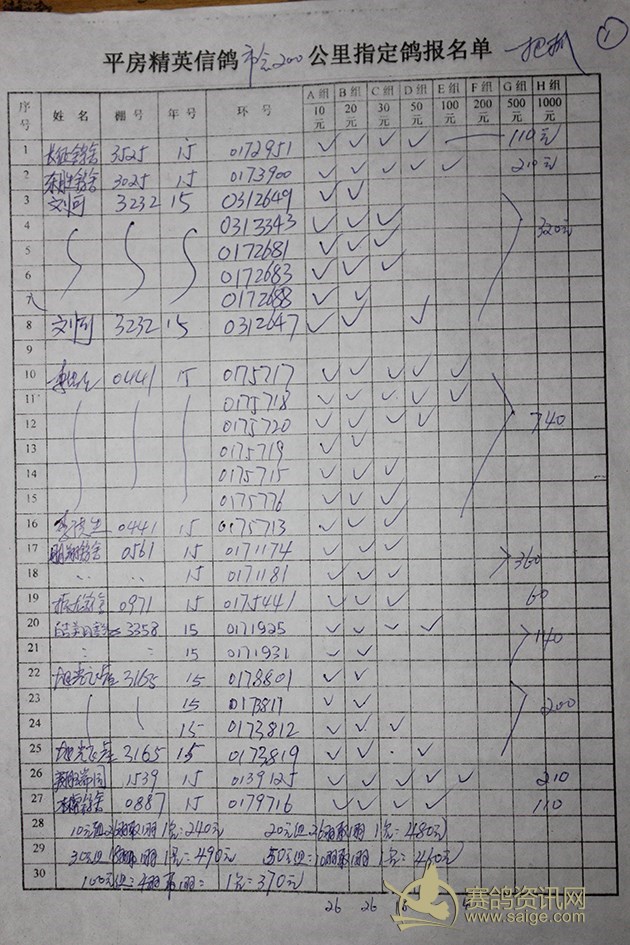 平房精英信鸽市会200公里指定鸽报名单 一把抓 ①
序号 姓 名 棚 号 年 号 环 号 A组 10元 B组 20元 C组 30元 D组 50元 E组 100元 F组 200元 G组 500元 H组 1000元
1 3525 15 0172951 ✓ ✓ ✓ ✓ 110元
2 3025 15 0173900 ✓ ✓ ✓ ✓ ✓ 210元
3 3232 15 0312649 ✓ ✓
4 0313343 ✓ ✓ ✓ 320元
5 0172681 ✓ ✓ ✓
6 0172683 ✓ ✓ ✓
7 0172688 ✓ ✓
8 3232 15 0312647 ✓ ✓ ✓
9
10 0441 15 0175717 ✓ ✓ ✓ ✓ ✓
11 0175718 ✓ ✓ ✓ ✓ ✓
12 0175720 ✓ ✓ ✓ ✓ 740
13 0175719 ✓ ✓
14 0175715 ✓ ✓ ✓
15 0175776 ✓ ✓ ✓
16 0441 15 0175713 ✓ ✓ ✓
17 0561 15 0171174 ✓ ✓ ✓ 360
18 15 0171181 ✓ ✓ ✓
19 0971 15 0175441 ✓ ✓ ✓ 60
20 3358 15 0171925 ✓ ✓ ✓ ✓ 140
21 15 0171931 ✓ ✓
22 3165 15 0178801 ✓ ✓
23 15 0173817 ✓ ✓ 200
24 15 0173812 ✓ ✓ ✓
25 3165 15 0173819 ✓ ✓ ✓
26 1539 15 0139125 ✓ ✓ ✓ ✓ ✓ 210
27 0887 15 0179716 ✓ ✓ ✓ ✓ 110
28 10元组26羽取1羽 1名=240元 20元组26羽取1羽 1名=480元
29 30元组18羽取1羽 1名=490元 50元组=10羽取1羽 1名=460元
30 100元组=4羽取1羽= 1名=370元
26 26 18
赛鸽资讯网
www.saige.com